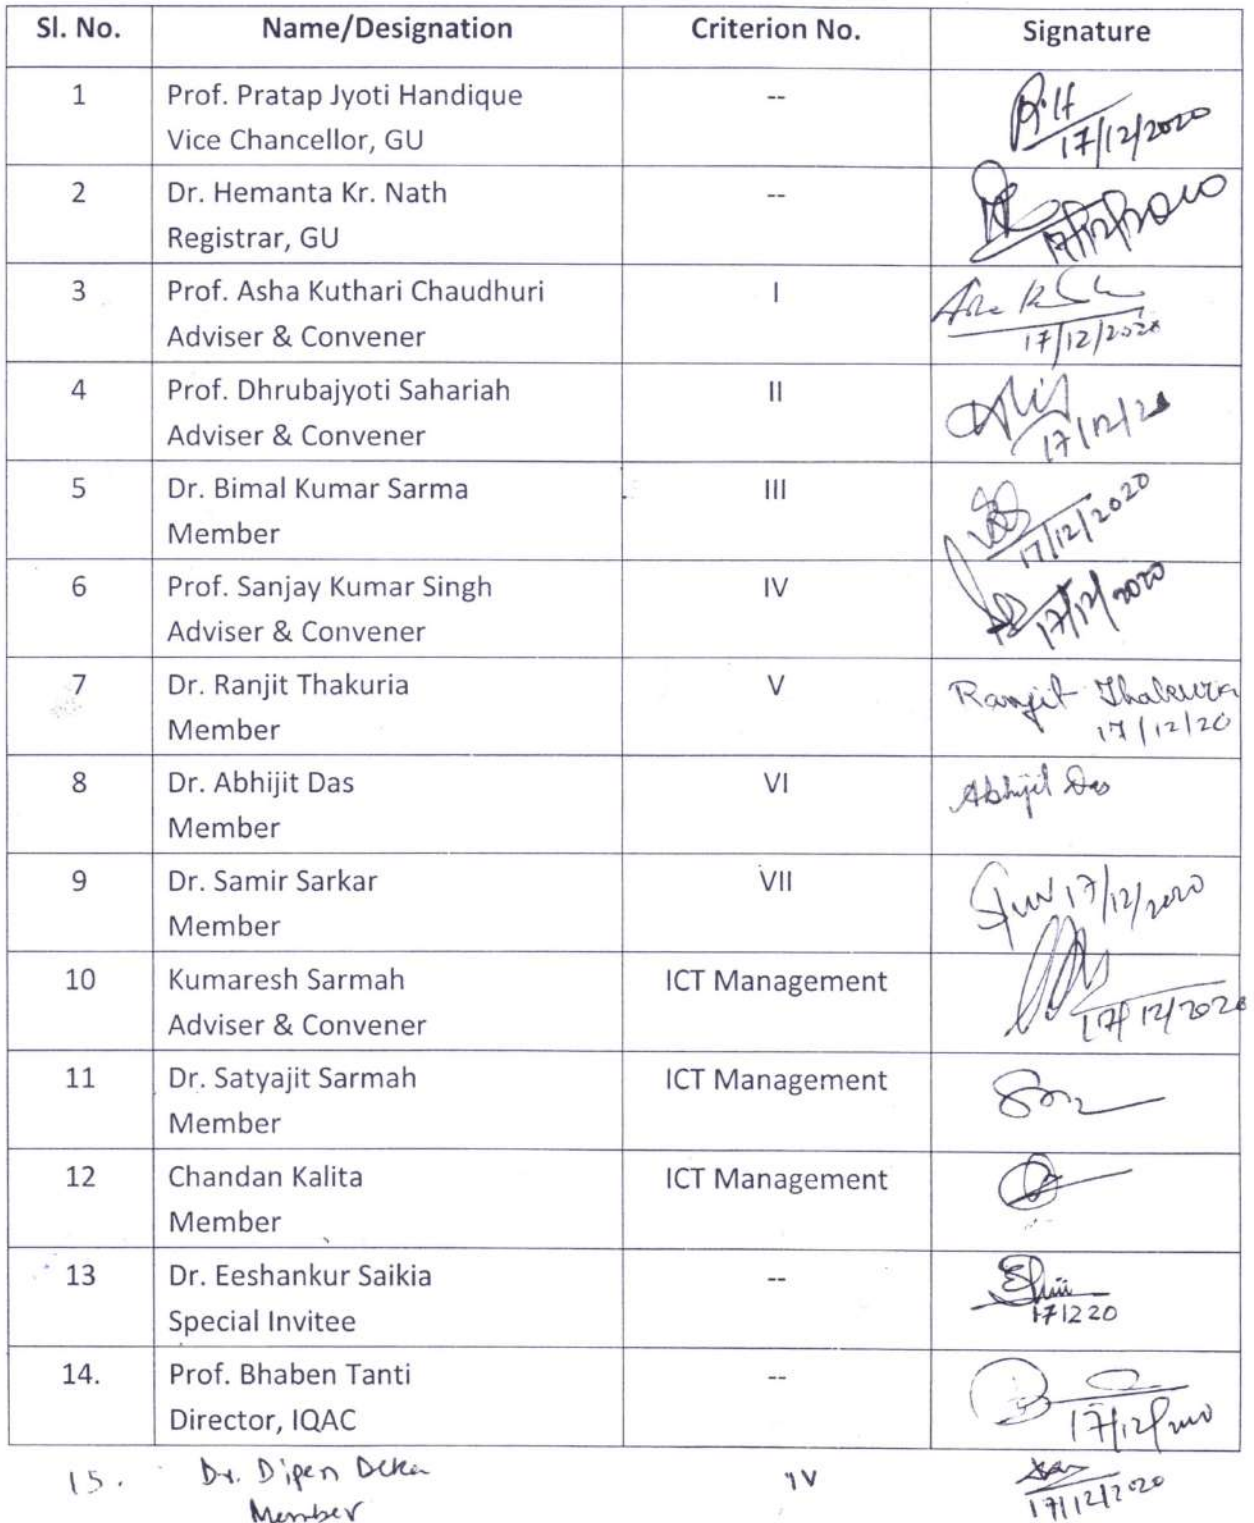 Sl. No. Name/Designation Criterion No. Signature
1 Prof. Pratap Jyoti Handique -- 
Vice Chancellor, GU 17/12/2020
2 Dr. Hemanta Kr. Nath --
Registrar, GU 17/12/2020
3 Prof. Asha Kuthari Chaudhuri I
Adviser & Convener 17/12/2020
4 Prof. Dhrubajyoti Sahariah II
Adviser & Convener 17/12/20
5 Dr. Bimal Kumar Sarma III
Member 17/12/2020
6 Prof. Sanjay Kumar Singh IV
Adviser & Convener 17/12/2020
7 Dr. Ranjit Thakuria V Ranjit Thakuria
Member 17/12/20
8 Dr. Abhijit Das VI Abhijit Das
Member
9 Dr. Samir Sarkar VII 17/12/2020
Member
10 Kumaresh Sarmah ICT Management
Adviser & Convener 17/12/2020
11 Dr. Satyajit Sarmah ICT Management
Member
12 Chandan Kalita ICT Management
Member
13 Dr. Eeshankur Saikia --
Special Invitee 171220
14. Prof. Bhaben Tanti --
Director, IQAC 17/12/2020
15. Dr. Dipen Deka IV
Member 17/12/2020